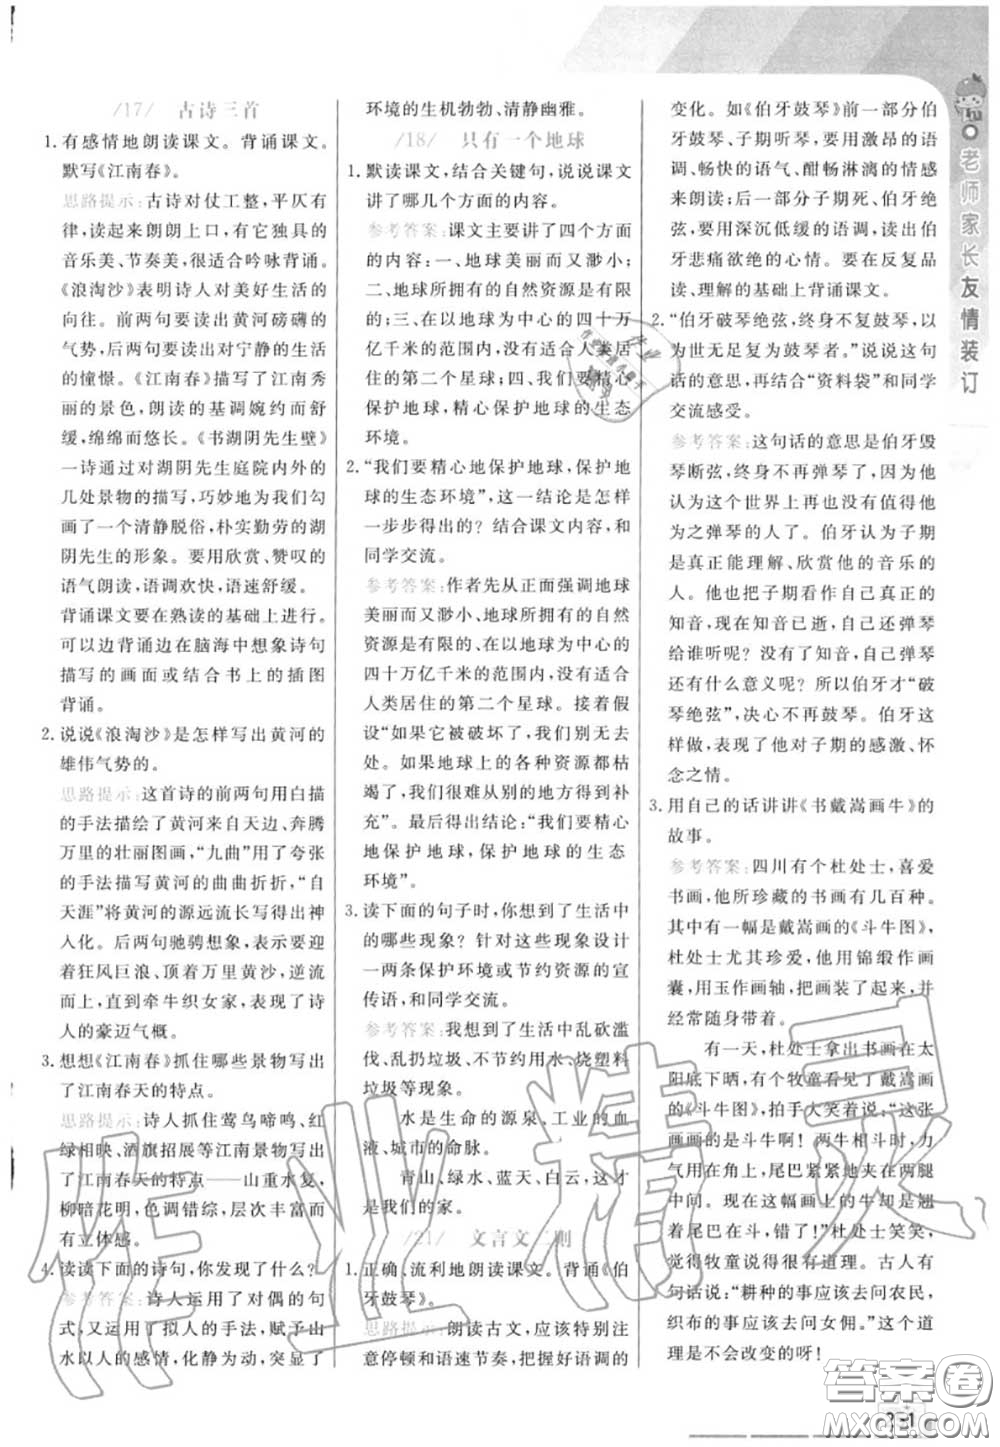 /17/ 古诗三首
1. 有感情地朗读课文。背诵课文。
默写《江南春》。
思路提示:古诗对仗工整,平仄有
律,读起来朗朗上口,有它独具的
音乐美、节奏美,很适合吟咏背诵。
《浪淘沙》表明诗人对美好生活的
向往。前两句要读出黄河磅礴的
气势,后两句要读出对宁静的生活
的憧憬。《江南春》描写了江南秀
丽的景色,朗读的基调婉约而舒
缓,绵绵而悠长。《书湖阴先生壁》
一诗通过对湖阴先生庭院内外的
几处景物的描写,巧妙地为我们勾
画了一个清静脱俗,朴实勤劳的湖
阴先生的形象。要用欣赏、赞叹的
语气朗读,语调欢快,语速舒缓。
背诵课文要在熟读的基础上进行。
可以边背诵边在脑海中想象诗句
描写的画面或结合书上的插图
背诵。
2. 说说《浪淘沙》是怎样写出黄河的
雄伟气势的。
思路提示:这首诗的前两句用白描
的手法描绘了黄河来自天边、奔腾
万里的壮丽图画,“九曲”用了夸张
的手法描写黄河的曲曲折折,“自
天涯”将黄河的源远流长写得出神
入化。后两句驰骋想象,表示要迎
着狂风巨浪、顶着万里黄沙,逆流
而上,直到牵牛织女家,表现了诗
人的豪迈气概。
3. 想想《江南春》抓住哪些景物写出
了江南春天的特点。
思路提示:诗人抓住莺鸟啼鸣、红
绿相映、酒旗招展等江南景物写出
了江南春天的特点——山重水复,
柳暗花明,色调错综,层次丰富而
有立体感。
4. 读读下面的诗句,你发现了什么?
参考答案:诗人运用了对偶的句
式,又运用了拟人的手法,赋予山
水以人的感情,化静为动,突显了
环境的生机勃勃、清静幽雅。
/18/ 只有一个地球
1. 默读课文,结合关键句,说说课文
讲了哪几个方面的内容。
参考答案:课文主要讲了四个方面
的内容:一、地球美丽而又渺小;
二、地球所拥有的自然资源是有限
的;三、在以地球为中心的四十万
亿千米的范围内,没有适合人类居
住的第二个星球;四、我们要精心
保护地球,精心保护地球的生态
环境。
2. “我们要精心地保护地球,保护地
球的生态环境”,这一结论是怎样
一步步得出的?结合课文内容,和
同学交流。
参考答案:作者先从正面强调地球
美丽而又渺小、地球所拥有的自然
资源是有限的、在以地球为中心的
四十万亿千米的范围内,没有适合
人类居住的第二个星球。接着假
设“如果它被破坏了,我们别无去
处。如果地球上的各种资源都枯
竭了,我们很难从别的地方得到补
充”。最后得出结论:“我们要精心
地保护地球,保护地球的生态
环境”。
3. 读下面的句子时,你想到了生活中
的哪些现象?针对这些现象设计
一两条保护环境或节约资源的宣
传语,和同学交流。
参考答案:我想到了生活中乱砍滥
伐、乱扔垃圾、不节约用水、烧塑料
垃圾等现象。
水是生命的源泉,工业的血
液,城市的命脉。
青山、绿水、蓝天、白云,这才
是我们的家。
/21/ 文言文二则
1. 正确、流利地朗读课文。背诵《伯
牙鼓琴》。
思路提示:朗读古文,应该特别注
意停顿和语速节奏,把握好语调的
变化。如《伯牙鼓琴》前一部分伯
牙鼓琴、子期听琴,要用激昂的语
调、畅快的语气、酣畅淋漓的情感
来朗读;后一部分子期死、伯牙绝
弦,要用深沉低缓的语调,读出伯
牙悲痛欲绝的心情。要在反复品
读、理解的基础上背诵课文。
2. “伯牙破琴绝弦,终身不复鼓琴,以
为世无足复为鼓琴者。”说说这句
话的意思,再结合“资料袋”和同学
交流感受。
参考答案:这句话的意思是伯牙毁
琴断弦,终身不再弹琴了。因为他
认为这个世界上再也没有值得他
为之弹琴的人了。伯牙认为子期
是真正能理解、欣赏他的音乐的
人。他也把子期看作自己真正的
知音,现在知音已逝,自己还弹琴
给谁听呢?没有了知音,自己弹琴
还有什么意义呢?所以伯牙才“破
琴绝弦”,决心不再鼓琴。伯牙这
样做,表现了他对子期的感激、怀
念之情。
3. 用自己的话讲讲《书戴嵩画牛》的
故事。
参考答案:四川有个杜处士,喜爱
书画,他所珍藏的书画有几百种。
其中有一幅是戴嵩画的《斗牛图》,
杜处士尤其珍爱,他用锦缎作画
囊,用玉作画轴,把画装了起来,并
经常随身带着。
有一天,杜处士拿出书画在太
阳底下晒,有个牧童看见了戴嵩画
的《斗牛图》,拍手大笑着说:“这张
画画的是斗牛啊!两牛相斗时,力
气用在角上,尾巴紧紧地夹在两腿
中间。现在这幅画上的牛却是翘
着尾巴在斗,错了!”杜处士笑笑,
觉得牧童说得很有道理。古人有
句话说:“耕种的事应该去问农民,
织布的事应该去问女佣。”这个道
理是不会改变的呀!
老师家长友情装订
作业精灵
答案圈
MXQE.COM